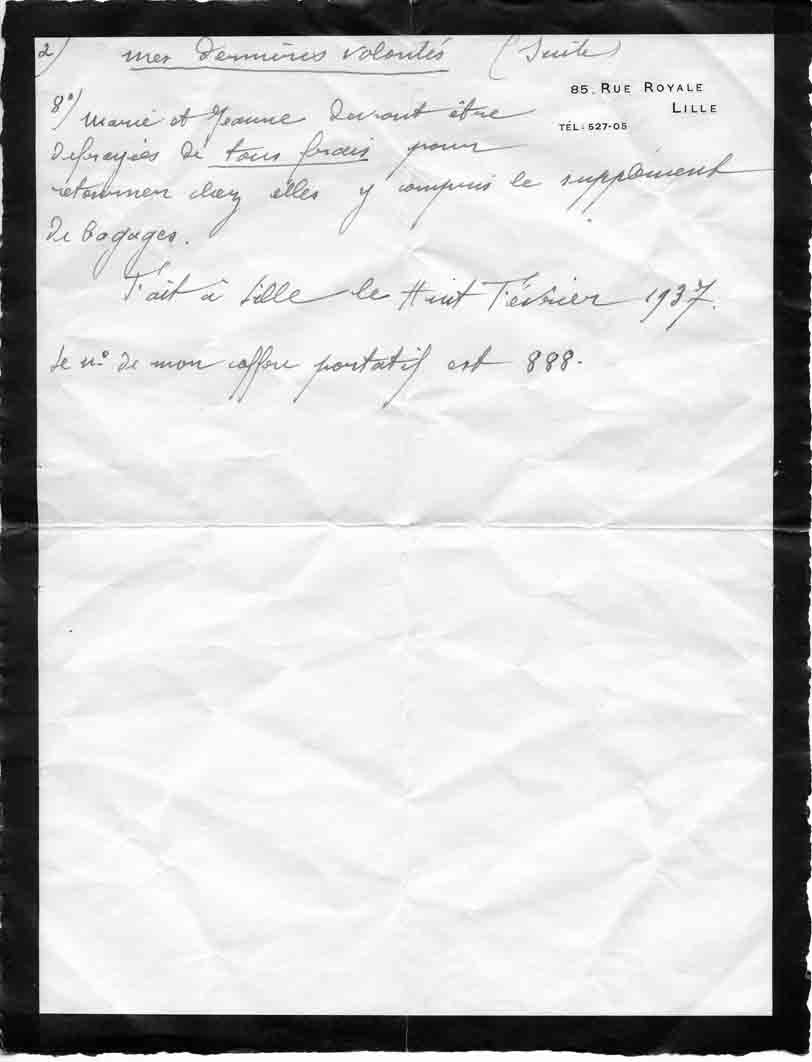 2) mes dernières volontés (suite)
85, RUE ROYALE
LILLE
TÉL: 527-05
8°) Marie et Jeanne devront être
défrayées de tous frais pour
retourner chez elles y compris le supplément
de bagages.
Fait à Lille le Huit Février 1937.
Le n° de mon coffre portatif est 888.